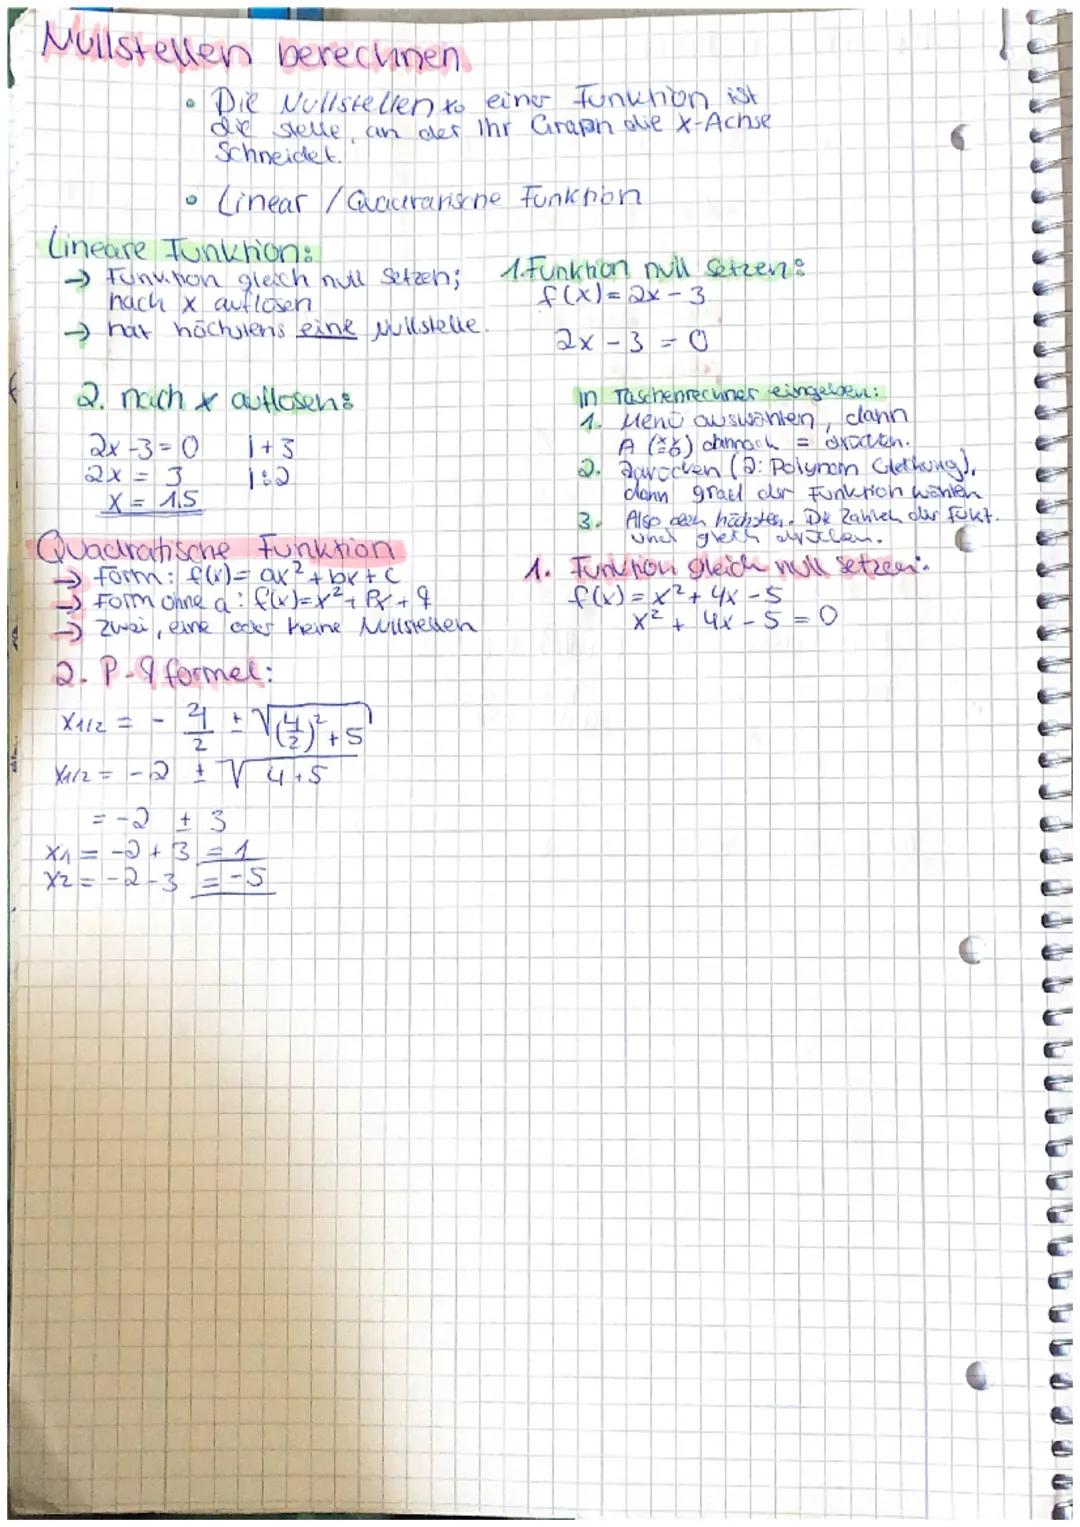 Nullstellen berechnen
• Die Nullstellen x₀ einer Funktion ist
die stelle, an der Ihr Graph die X-Achse
Schneidet.
• Linear / Quadratische Funktion
Lineare Funktion:
→ Funktion gleich null Setzen;
nach x auflösen
→ hat höchstens eine Nullstelle.
1. Funktion null setzen:
f(x) = 2x - 3
2x - 3 = 0
2. nach x auflösen:
2x - 3 = 0 | + 3
2x = 3 | : 2
x = 1,5
in Taschenrechner eingeben:
1. Menü auswählen, dann
A (xy=0) danach = drücken.
2. 2 drücken (2: Polynom Gleichung),
dann grad der Funktion wählen
3. Also den höchsten. Die Zahlen der Funkt.
und gleich drücken.
Quadratische Funktion
→ Form: f(x) = ax² + bx + c
→ Form ohne a: f(x) = x² + Px + q
→ Zwei, eine oder keine Nullstellen
1. Funktion gleich null setzen:
f(x) = x² + 4x - 5
x² + 4x - 5 = 0
2. P-q formel:
x1/2 = - 4/2 ± √((4/2)² + 5)
x1/2 = -2 ± √4+5
= -2 ± 3
x1 = -2 + 3 = 1
x2 = -2 - 3 = -5